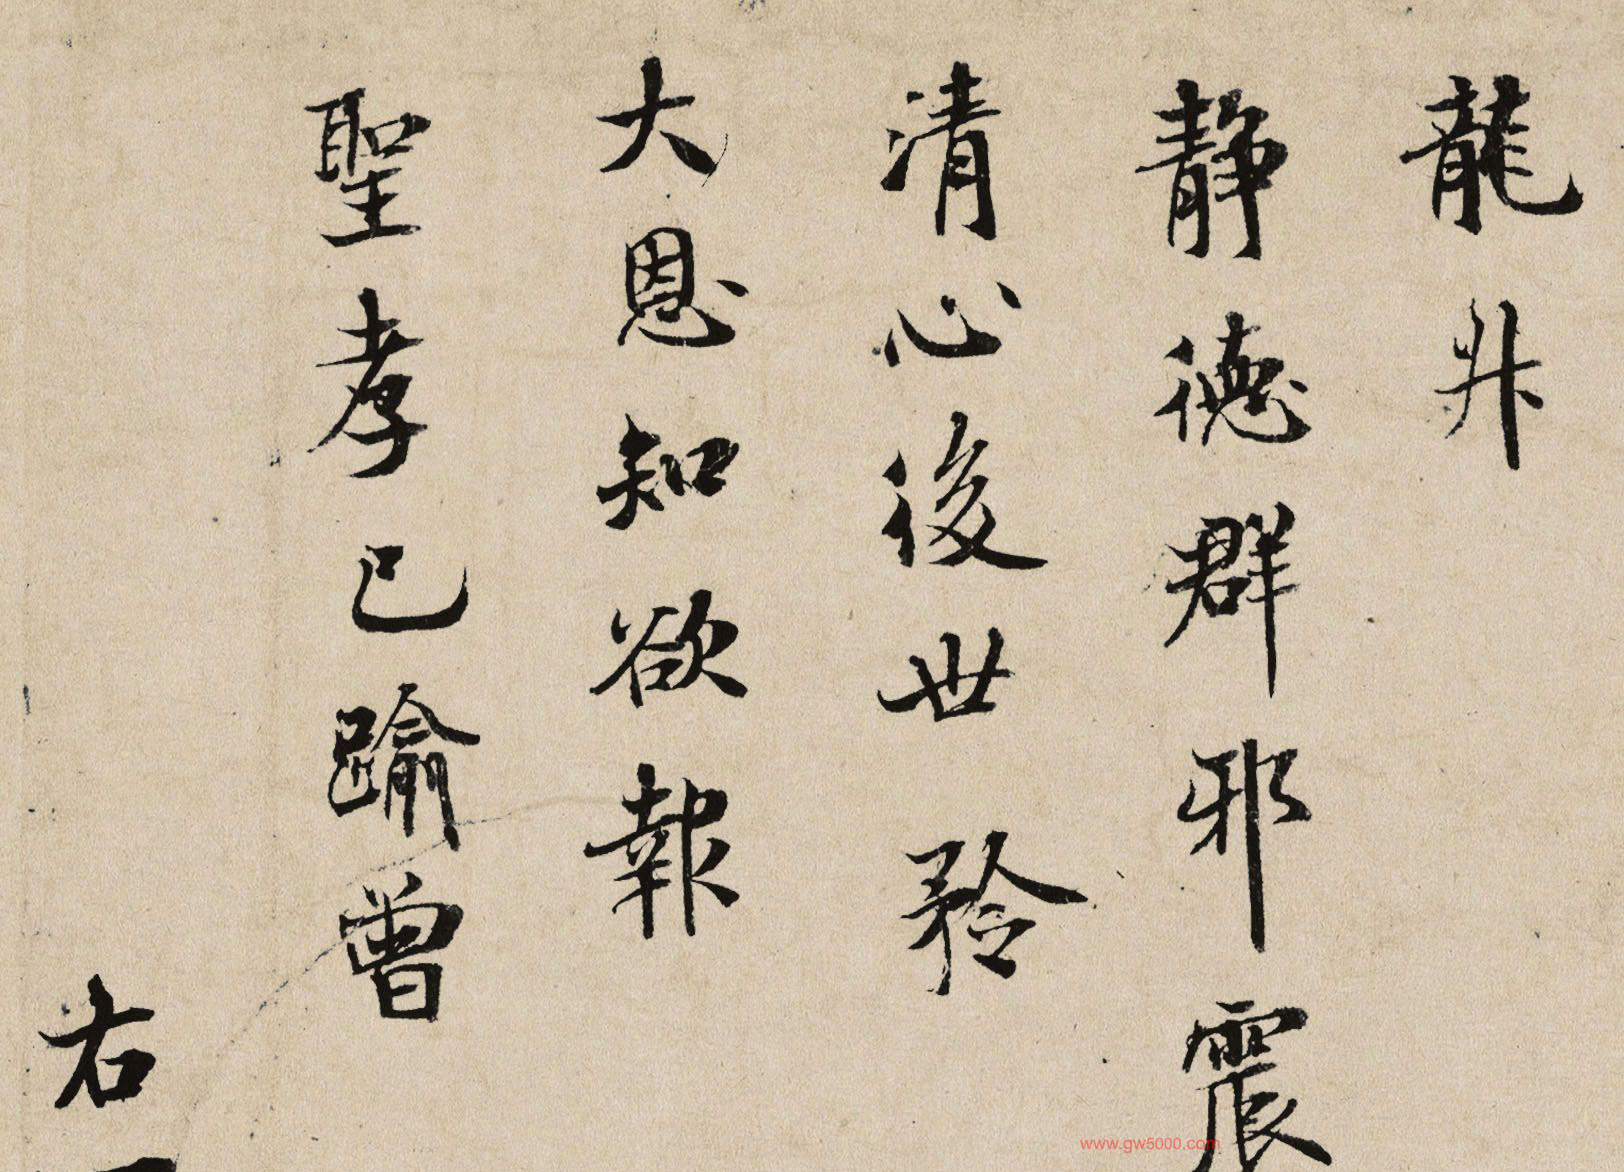 龍升
静德群邪震
清心後世矜
大恩知欲報
聖孝已踰曾
右
www.gw5000.com